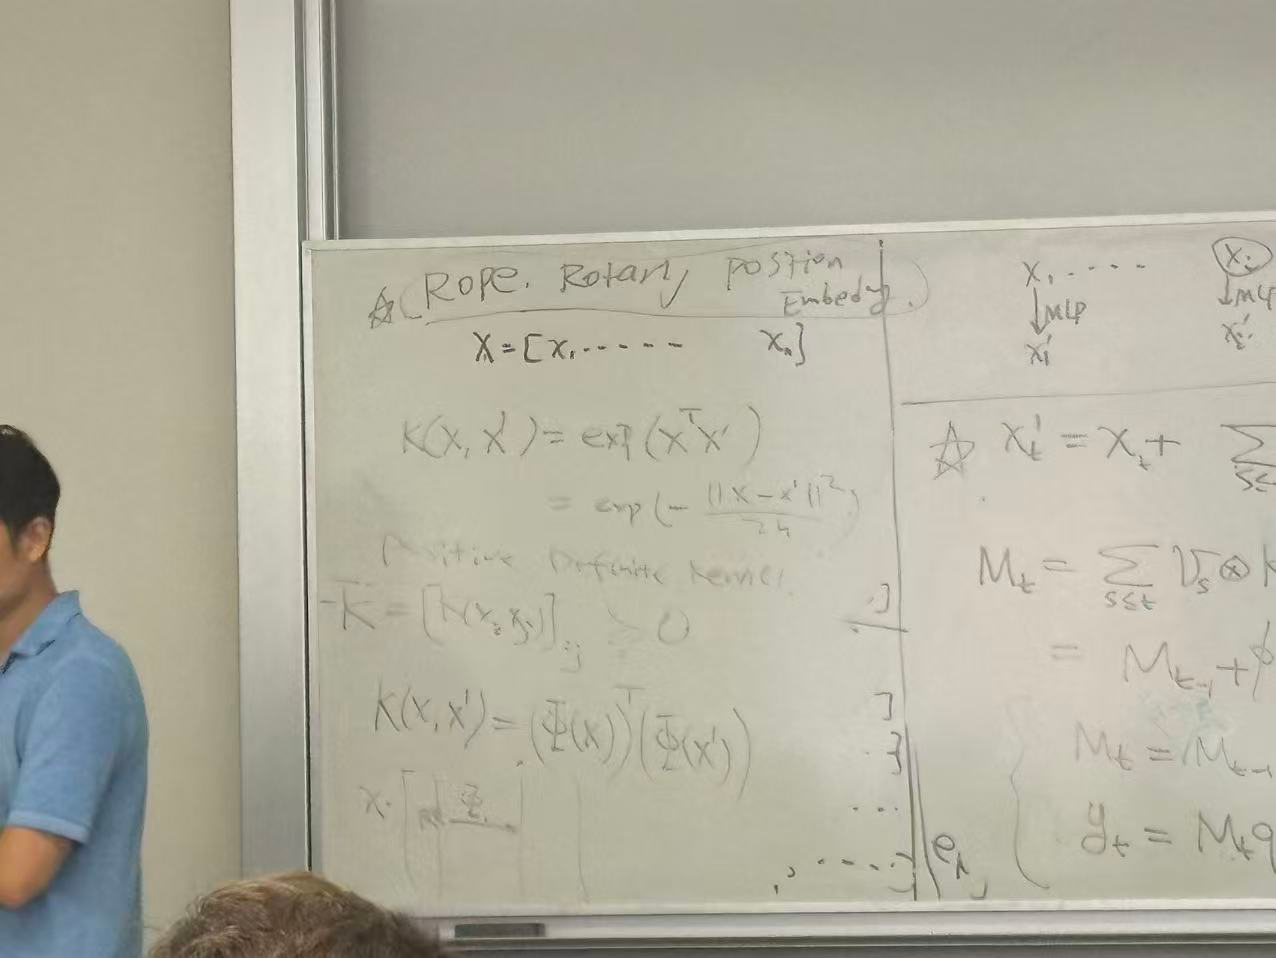 ☆ (Rope. Rotary Position
Embedg.
X = [x₁ ...... xₙ]
K(x, x') = exp(xᵀx')
= exp(- ||x - x'||² / 2h)
Positive Definite Kernel.
K = [K(xᵢ xⱼ)]ᵢⱼ ≥ 0
K(x, x') = (Φ(x))ᵀ(Φ(x'))
x₁ ......
↓ MLP
x₁'
xᵢ
↓ MLP
xᵢ'
☆ xₜ' = xₜ + Σ
Mₜ = Σ s≤t Vₛ ⊗ k
= Mₜ₋₁ + ϕ
Mₜ = Mₜ₋₁
yₜ = Mₜq